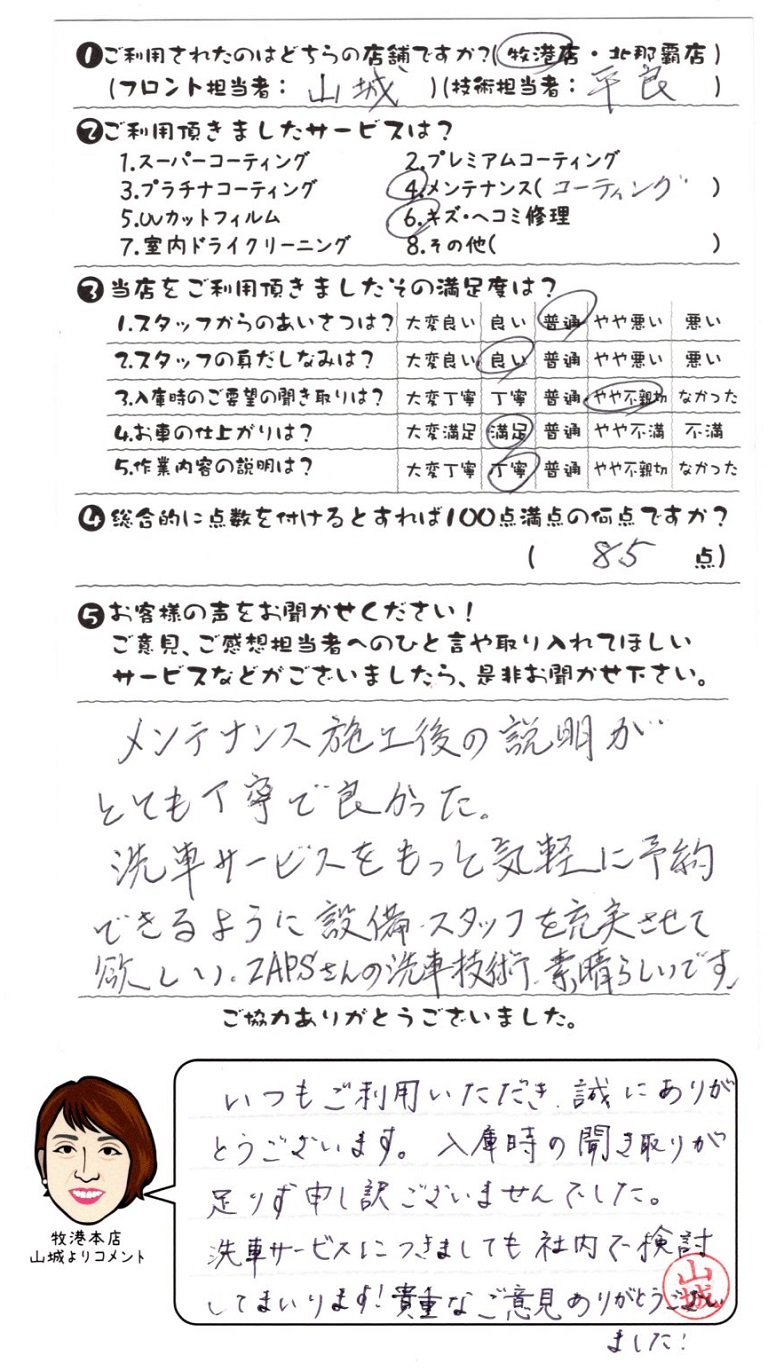 ❶ご利用されたのはどちらの店舗ですか?(牧港店・北那覇店)
(フロント担当者: 山城 )(技術担当者: 平良 )
❷ご利用頂きましたサービスは?
1.スーパーコーティング 2.プレミアムコーティング
3.プラチナコーティング 4.メンテナンス(コーティング )
5.UVカットフィルム 6.キズ・ヘコミ修理
7.室内ドライクリーニング 8.その他( )
❸当店をご利用頂きましたその満足度は?
1.スタッフからのあいさつは? 大変良い 良い 普通 やや悪い 悪い
2.スタッフの身だしなみは? 大変良い 良い 普通 やや悪い 悪い
3.入庫時のご要望の聞き取りは? 大変丁寧 丁寧 普通 やや不親切 なかった
4.お車の仕上がりは? 大変満足 満足 普通 やや不満 不満
5.作業内容の説明は? 大変丁寧 丁寧 普通 やや不親切 なかった
❹総合的に点数を付けるとすれば100点満点の何点ですか?
( 85 点)
❺お客様の声をお聞かせください!
ご意見、ご感想担当者へのひと言や取り入れてほしい
サービスなどがございましたら、是非お聞かせ下さい。
メンテナンス施工後の説明が
とても丁寧で良かった。
洗車サービスをもっと気軽に予約
できるように設備・スタッフを充実させて
欲しい。ZAPSさんの洗車技術、素晴らしいです。
ご協力ありがとうございました。
いつもご利用いただき、誠にありが
とうございます。入庫時の聞き取りが
足りず申し訳ございませんでした。
洗車サービスにつきましても社内で検討
してまいります!貴重なご意見ありがとうござい
ました!
山城
牧港本店
山城よりコメント